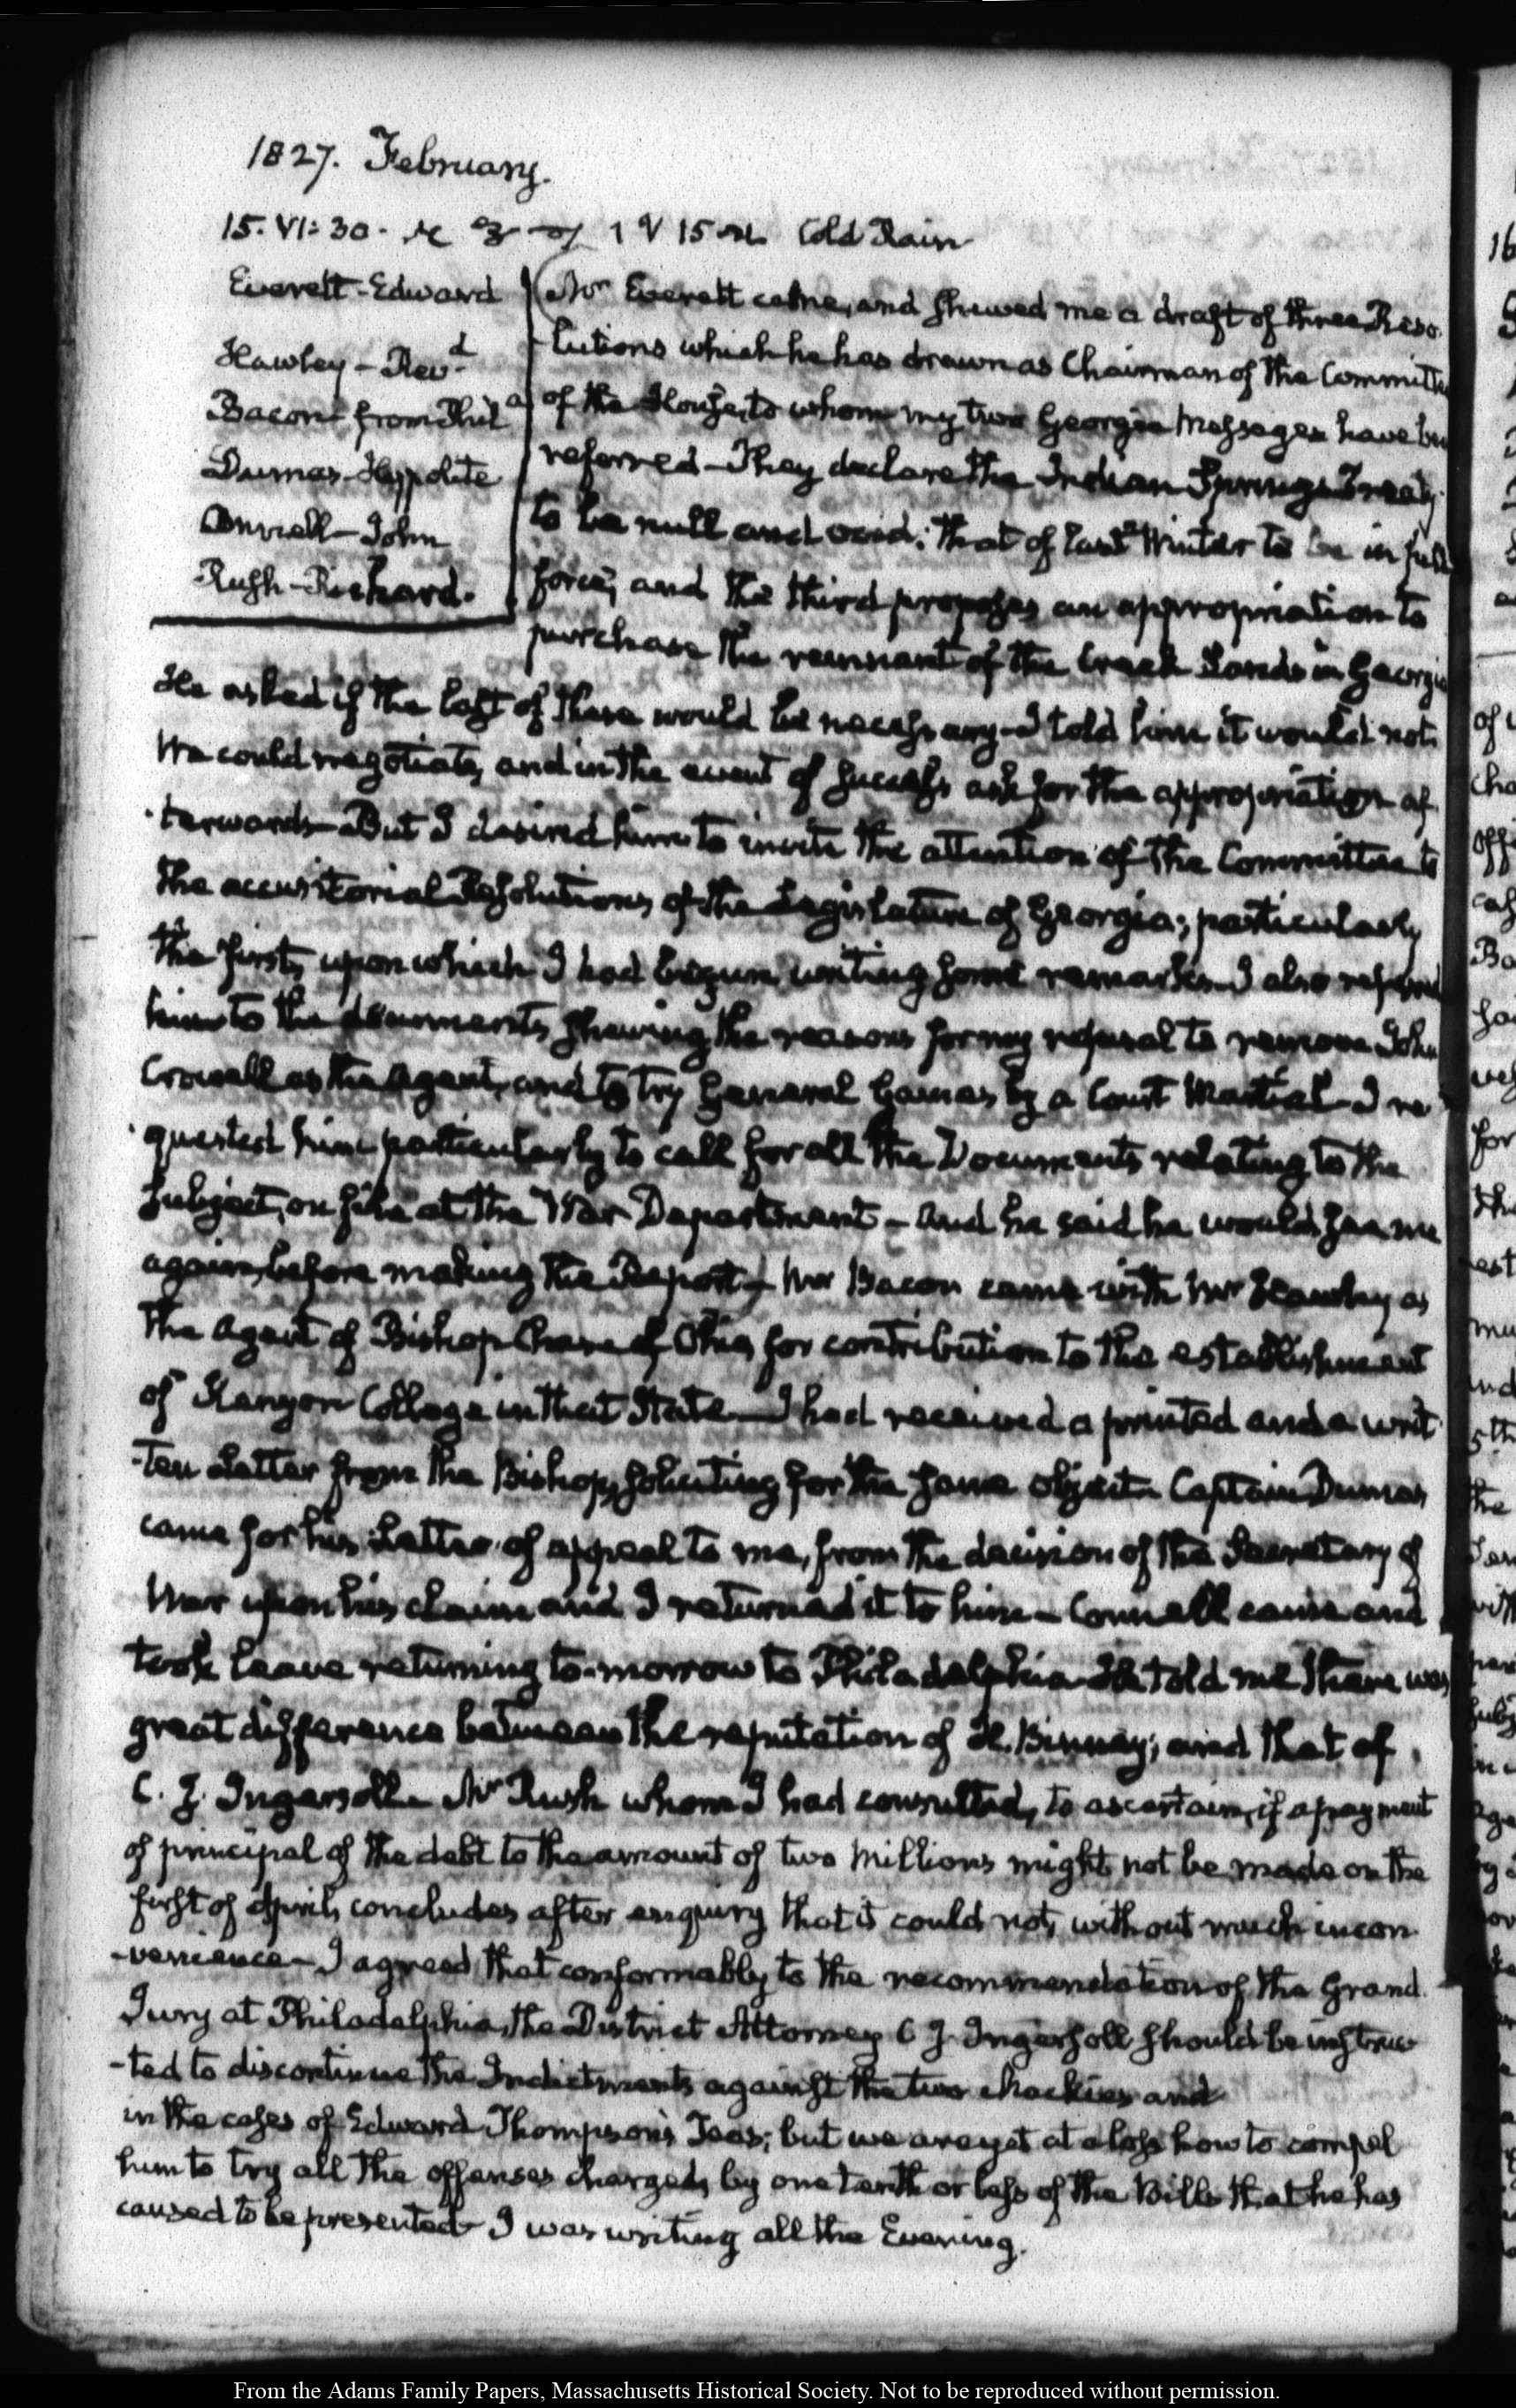 1827. February.
15. VI: 30. Cold Rain
Everett - Edward
Hawley - Revd.
Bacon from Phila
Dumas - Hyppolite
Connell - John
Rush - Richard.
Mr Everett came, and shewed me a draft of three Reso-
-lutions which he has drawn as Chairman of the Committee
of the House, to whom my two Georgia Messages have been
referred - They declare the Indian Springs Treaty
to be null and void; that of last Winter to be in full
force; and the third proposes an appropriation to
purchase the remnant of the Creek Lands in Georgia
He asked if the last of these would be necessary - I told him it would not.
We could negotiate, and in the event of success ask for the appropriation af-
-terwards - But I desired him to invite the attention of the Committee to
the accusitorial Resolutions of the Legislature of Georgia; particularly
the first, upon which I had begun writing some remarks - I also referred
him to the documents shewing the reasons for my refusal to remove John
Crowell as the Agent, and to try General Gaines by a Court Martial - I re-
-quested him particularly to call for all the Documents relating to the
subject, on file at the War Department - And he said he would see me
again, before making the Report - Mr Bacon came with Mr Hawley as
the Agent of Bishop Chase of Ohio, for contribution to the establishment
of Kenyon College in that State - I had received a printed and a writ-
-ten Letter from the Bishop, soliciting for the same object - Captain Dumas
came for his Letter of appeal to me, from the decision of the Secretary of
War upon his claim and I returned it to him - Connell came and
took leave returning to-morrow to Philadelphia - He told me there was
great difference between the reputation of H. Binney; and that of
C. J. Ingersoll - Mr Rush whom I had consulted, to ascertain, if a payment
of principal of the debt to the amount of two Millions might not be made on the
first of April, concludes after enquiry that it could not, without much incon-
-venience - I agreed that conformably to the recommendation of the Grand
Jury at Philadelphia, the District Attorney C J. Ingersoll should be instruc-
-ted to discontinue the Indictments against the two Mackies and
in the cases of Edward Thompson's Teas; but we are yet at a loss how to compel
him to try all the offenses charged, by one tenth or less of the Bills that he has
caused to be presented - I was writing all the Evening.
16
From the Adams Family Papers, Massachusetts Historical Society. Not to be reproduced without permission.